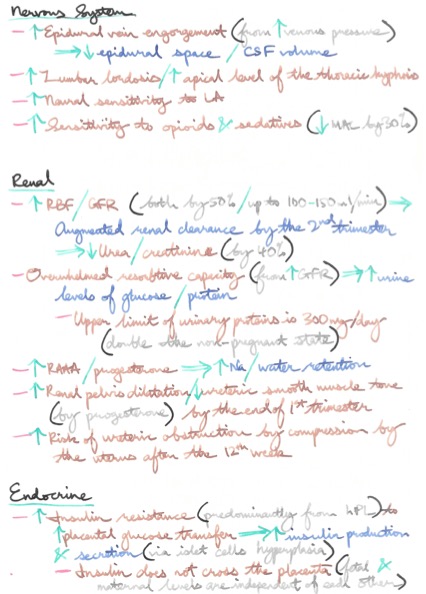 Nervous System
- ↑ Epidural vein engorgement (from ↑ venous pressure)
⇒ ↓ epidural space / CSF volume
- ↑ Lumbar lordosis / ↑ apical level of the thoracic kyphosis
- ↑ Neural sensitivity to LA
- ↑ Sensitivity to opioids & sedatives (↓ MAC by 30%)
Renal
- ↑ RBF / GFR (both by 50% / up to 100-150ml/min) →
Augmented renal clearance by the 2nd trimester
⇒ ↓ Urea / creatinine (by 40%)
- Overwhelmed resorbtive capacity (from ↑ GFR) ⇒ ↑ urine
levels of glucose / protein
- Upper limit of urinary proteins is 300mg/day
(double the non-pregnant state)
- ↑ RAAA / progesterone ⇒ ↑ Na / water retention
- ↑ Renal pelvis dilatation / ↓ ureteric smooth muscle tone
(by progesterone) by the end of 1st trimester
- ↑ Risk of ureteric obstruction by compression by
the uterus after the 12th week
Endocrine
- ↑ Insulin resistance (predominantly from hPL) to
↑ placental glucose transfer ⇒ ↑ insulin production
& secretion (via islet cells hyperplasia)
- Insulin does not cross the placenta (fetal &
maternal levels are independent of each other)